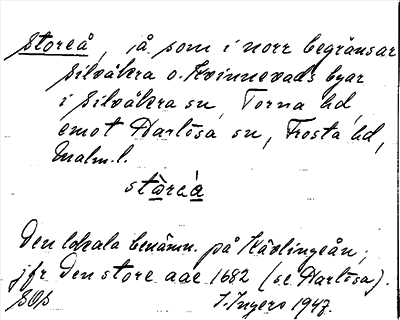 Storeå, å som i norr begränsar
Silvåkra o. Kvinnevads byar
i Silvåkra sn, Torna hd,
emot Harlösa sn, Frosta hd,
Malm. l.
stàreá
Den lokala benämn. på Kävlingeån;
jfr Den store aae 1682 (se Harlösa).
SOS I. Ingers 1947.